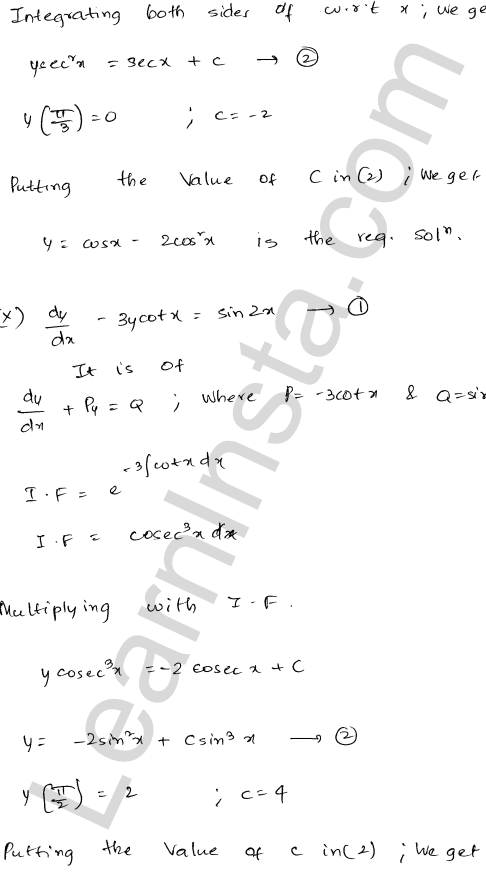 Integrating both sides of w.r.t x ; we ge
y sec²x = secx + c → ②
y(π/3) = 0 ; c = -2
Putting the Value of C in (2) ; We get
y = cosx - 2cos²x is the req. solⁿ.
x) dy/dx - 3ycotx = sin2x → ①
It is of
dy/dx + Py = Q ; Where P = -3cotx & Q = sin
I.F = e^(-3∫cotx dx)
I.F = cosec³x dx
Multiplying with I.F.
y cosec³x = -2 cosec x + C
y = -2sin²x + c sin³x → ②
y(π/2) = 2 ; c = 4
Putting the Value of c in (2) ; We get
LearnInsta.com